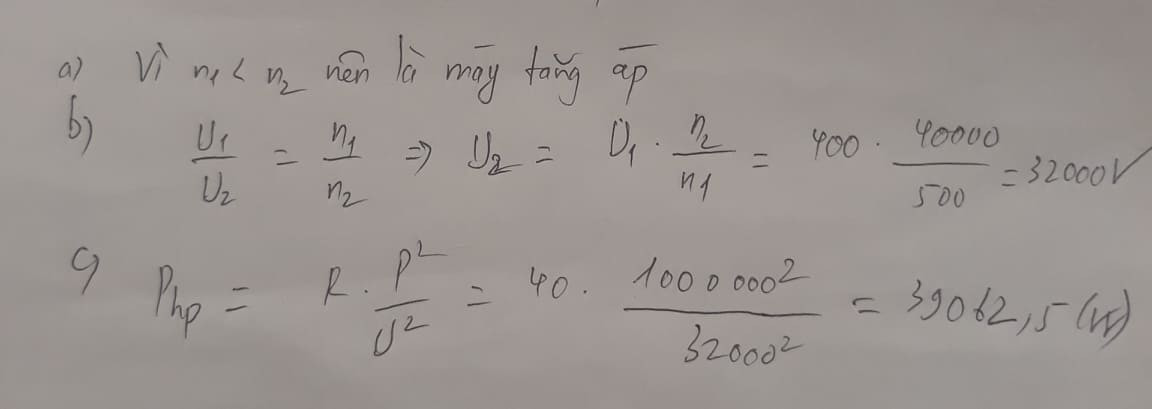 a) Vì n₁ < n₂ nên là máy tăng áp
b) U₁/U₂ = n₁/n₂ => U₂ = U₁ . n₂/n₁ = 400 . 40000/500 = 32000V
c) Php = R . P²/U² = 40 . 1000000²/32000² = 39062,5 (W)